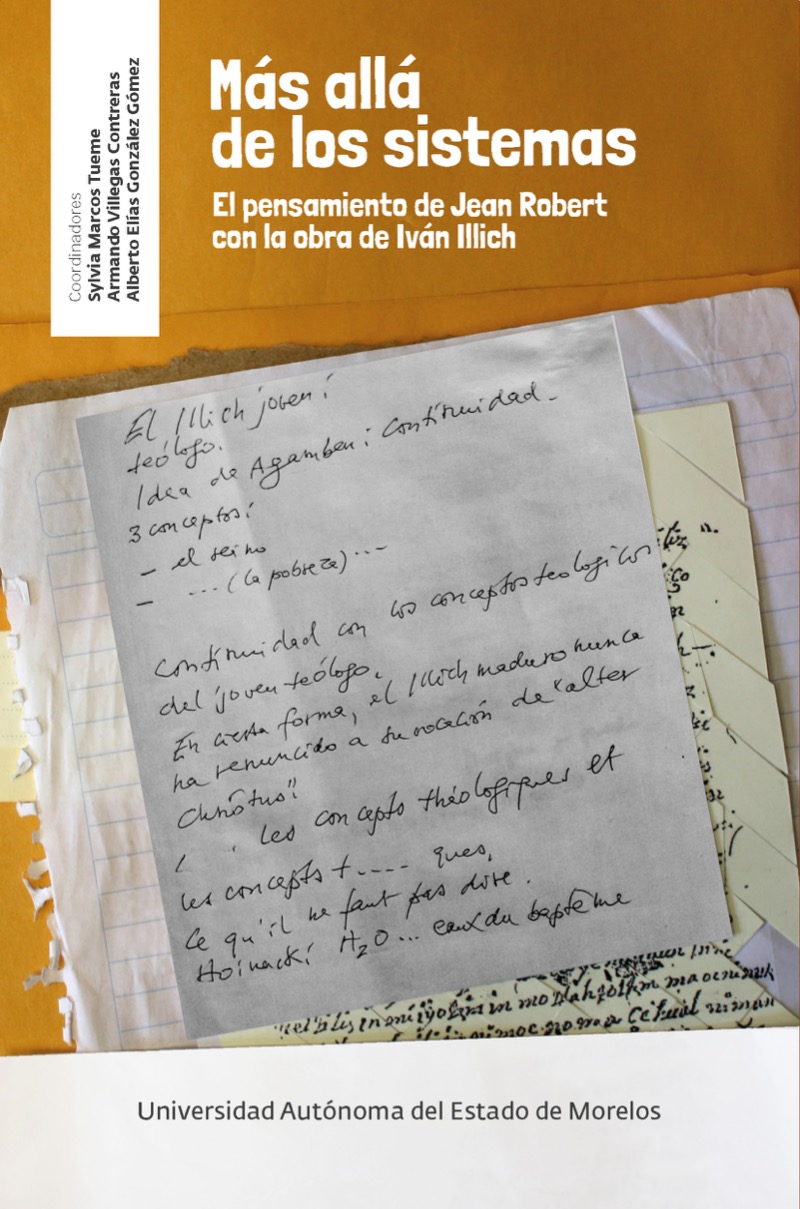 Coordinadores
Sylvia Marcos Tueme
Armando Villegas Contreras
Alberto Elías González Gómez
Más allá
de los sistemas
El pensamiento de Jean Robert
con la obra de Iván Illich
El Illich joven:
teólogo.
Idea de Agamben: Continuidad.
3 conceptos:
– el reino
– ... (la pobreza) ...
Continuidad con los conceptos teologicos
del joven teólogo.
En cierta forma, el Illich maduro nunca
ha renuncido a su vocación de "alter
Christus"
Les concepts théologiques et
les concepts t.... ques,
Ce qu'il ne faut pas dire.
Hoinacki H₂O ... eaux du baptême
Universidad Autónoma del Estado de Morelos